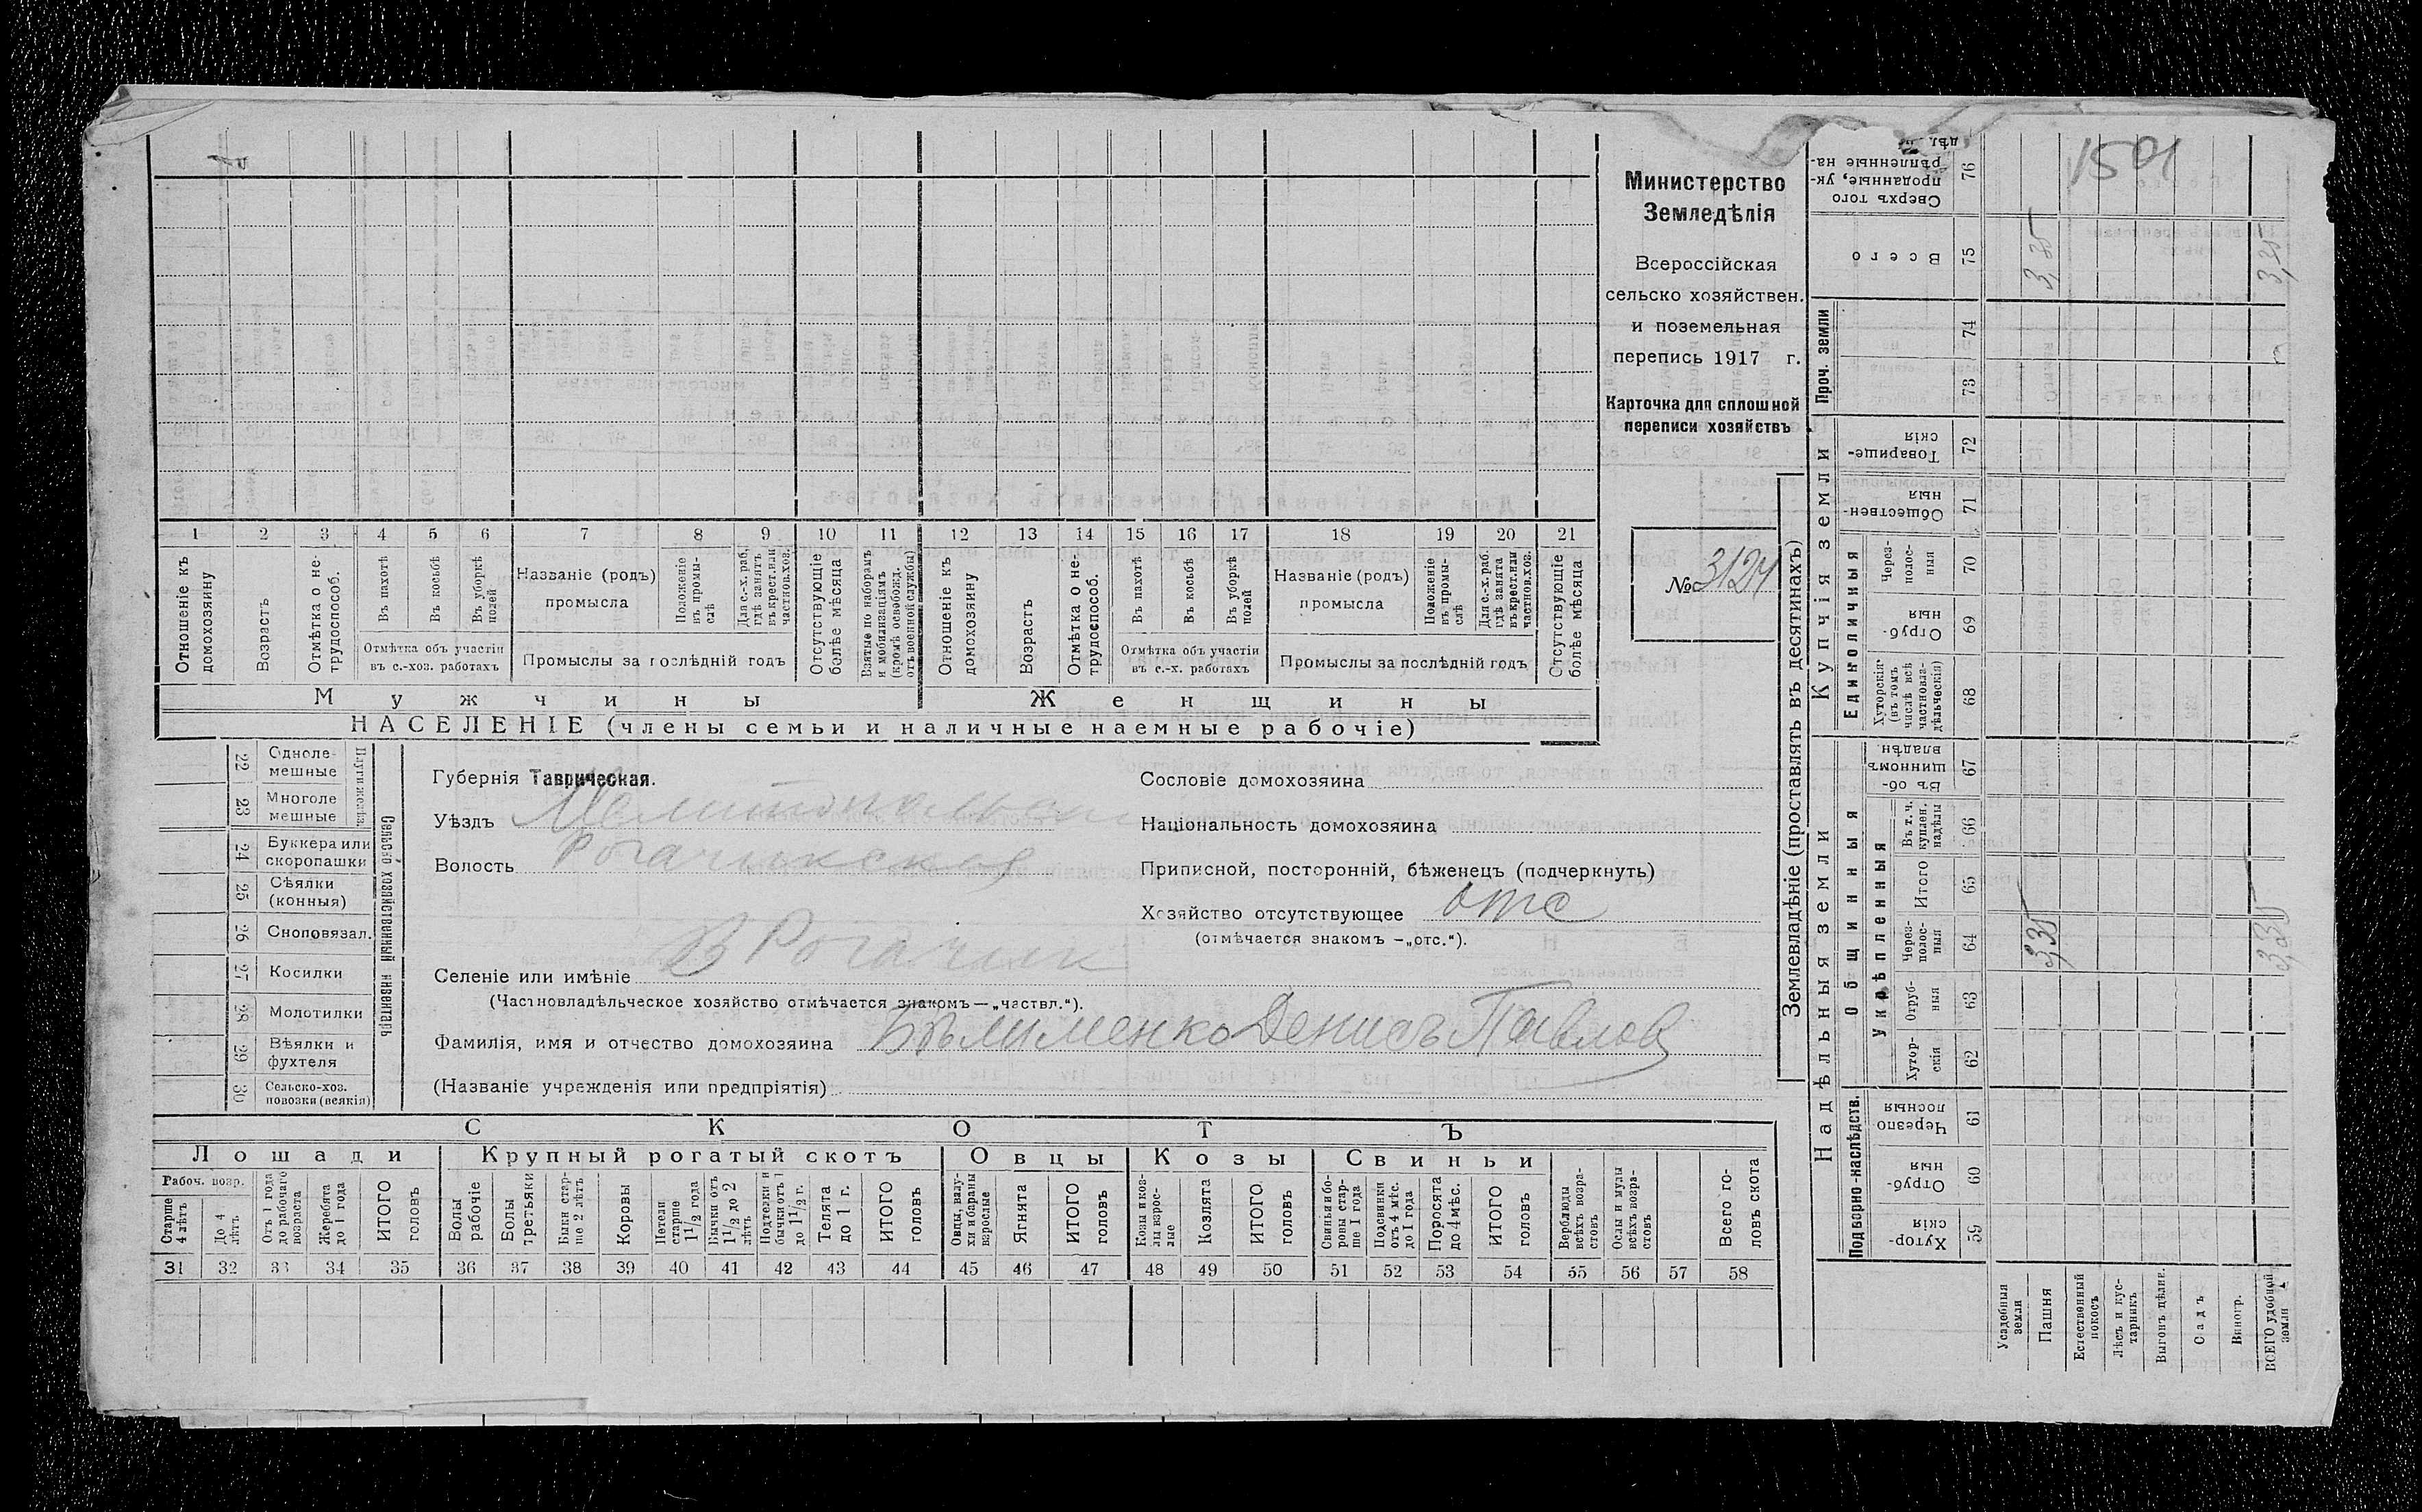 Министерство
Земледѣлія
Всероссійская
сельско хозяйствен.
и поземельная
перепись 1917 г.
Карточка для сплошной
переписи хозяйствъ
№ 3124
1 2 3 4 5 6 7 8 9 10 11 12 13 14 15 16 17 18 19 20 21
Отношеніе къ домохозяину
Возрастъ
Отмѣтка о нетрудоспособ.
Въ пахотѣ
Въ косьбѣ
Въ уборкѣ полей
Отмѣтка объ участіи
въ с.-хоз. работахъ
Названіе (родъ)
промысла
Положеніе въ промы-слѣ
Для с.-х. раб. гдѣ занятъ въ крест. или частнов. хоз.
Промыслы за послѣдній годъ
Отсутствующіе болѣе мѣсяца
Взятые по наборамъ и мобилизаціямъ (кромѣ освобожд. отъ военной службы)
Отношеніе къ домохозяину
Возрастъ
Отмѣтка о не-трудоспособ.
Въ пахотѣ
Въ косьбѣ
Въ уборкѣ полей
Отмѣтка объ участіи
въ с.-х. работахъ
Названіе (родъ)
промысла
Положеніе въ промы-слѣ
Для с.-х. раб. гдѣ занята въ крест. или частнов. хоз.
Промыслы за послѣдній годъ
Отсутствующіе болѣе мѣсяца
Мужчины
Женщины
НАСЕЛЕНІЕ (члены семьи и наличные наемные рабочіе)
Сельско хозяйственный инвентарь
Плуги желѣз.
22 Одноле-мешные
23 Многоле мешные
24 Буккера или скоропашки
25 Сѣялки (конныя)
26 Сноповязал.
27 Косилки
28 Молотилки
29 Вѣялки и фухтеля
30 Сельско-хоз. повозки (всякія)
Губернія Таврическая.
Уѣздъ Мелитопольск
Волость Рогачикская
Селеніе или имѣніе В Рогачик
(Частновладѣльческое хозяйство отмѣчается знакомъ—„частвл.“).
Фамилія, имя и отчество домохозяина Вѣлименко Денисъ Павлов
(Названіе учрежденія или предпріятія)
Сословіе домохозяина
Національность домохозяина
Приписной, посторонній, бѣженецъ (подчеркнуть)
Хозяйство отсутствующее отс
(отмѣчается знакомъ —„отс.“).
СКОТЪ
Лошади
Крупный рогатый скотъ
Овцы
Козы
Свиньи
Рабоч. возр.
Старше 4 лѣтъ
До 4 лѣтъ
Отъ 1 года до рабочаго возраста
Жеребята до 1 года
ИТОГО головъ
Волы рабочіе
Волы третьяки
Быки стар-ше 2 лѣтъ
Коровы
Нетели старше 1 1/2 года
Бычки отъ 1 1/2 до 2 лѣтъ
Подтелки и бычки отъ 1 до 1 1/2 г.
Телята до 1 г.
ИТОГО головъ
Овцы, валу-хи и бараны взрослые
Ягнята
ИТОГО головъ
Козы и коз-лы взрос-лые
Козлята
ИТОГО головъ
Свиньи и бо-ровы стар-ше 1 года
Подсвинки отъ 4 мѣс. до 1 года
Поросята до 4 мѣс.
ИТОГО головъ
Верблюды всѣхъ возра-стовъ
Ослы и мулы всѣхъ возра-стовъ
Всего го-ловъ скота
31 32 33 34 35 36 37 38 39 40 41 42 43 44 45 46 47 48 49 50 51 52 53 54 55 56 57 58
Землевладѣніе (проставлять въ десятинахъ)
Надѣльныя земли
Купчія земли
Проч. земли
Подворно-наслѣдств.
Общинныя
Укрѣпленныя
Единоличныя
Хутор-скія 59
Отруб-ныя 60
Черезпо лосныя 61
Хутор-скія 62
Отруб-ныя 63
Через-полос-ныя 64
Итого 65
Въ т. ч. куплен. надѣлы 66
Въ об-щинномъ владѣн. 67
Хуторскія (въ томъ числѣ всѣ частновла-дѣльческія) 68
Отруб-ныя 69
Через-полос-ныя 70
Обществен-ныя 71
Товарище-скія 72
73
74
Всего 75
Сверхъ того проданныя, ук-рѣпленныя на- дѣл. 76
Усадебныя земли
Пашня 3,35 3,35
Естественный покосъ
Лѣсъ и кус-тарникъ
Выгонъ цѣлин.
Садъ
Виногр.
ВСЕГО удобной земли 3,35 3,35
1501